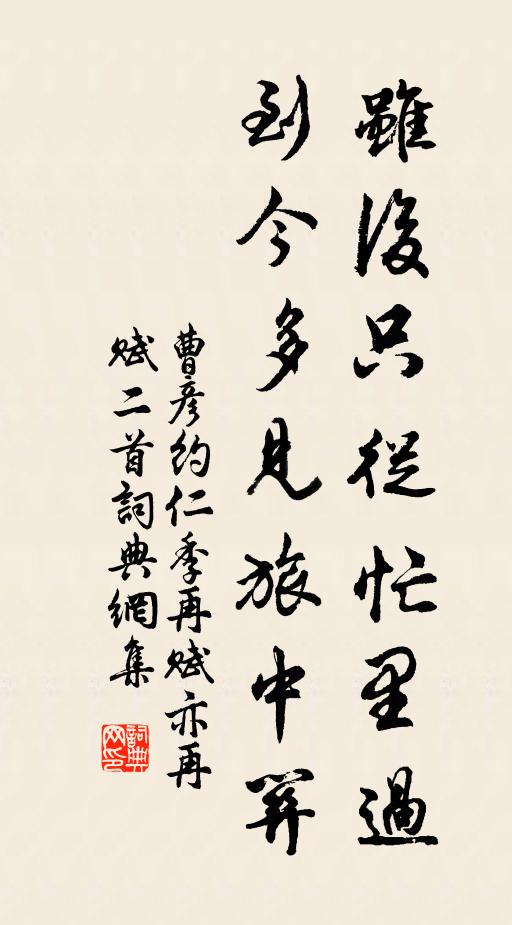 雖復只從忙里過
到今多見旅中開
曹彦約仁季再賦亦再
賦二首詞典網集
詞典網印